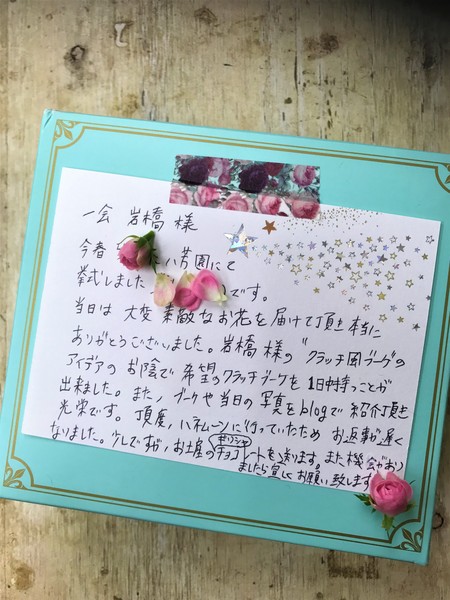 一会 岩橋 様
今春 い芳園にて
挙式しました です。
当日は 大変 素敵なお花を届けて頂き 本当に
ありがとうございました。岩橋 様の"クラッチ風ブーケ"の
アイデアの お陰で 希望のクラッチブーケを 1日中持つことが
出来ました。また、ブーケや当日の写真をblogで紹介頂き
光栄です。 頂度、ハネムーンに行っていたため お返事が遅く
なりました。少しですが、お土産の ギリシャ チョコレートを送ります。また機会があり
ましたら宜しくお願い致します